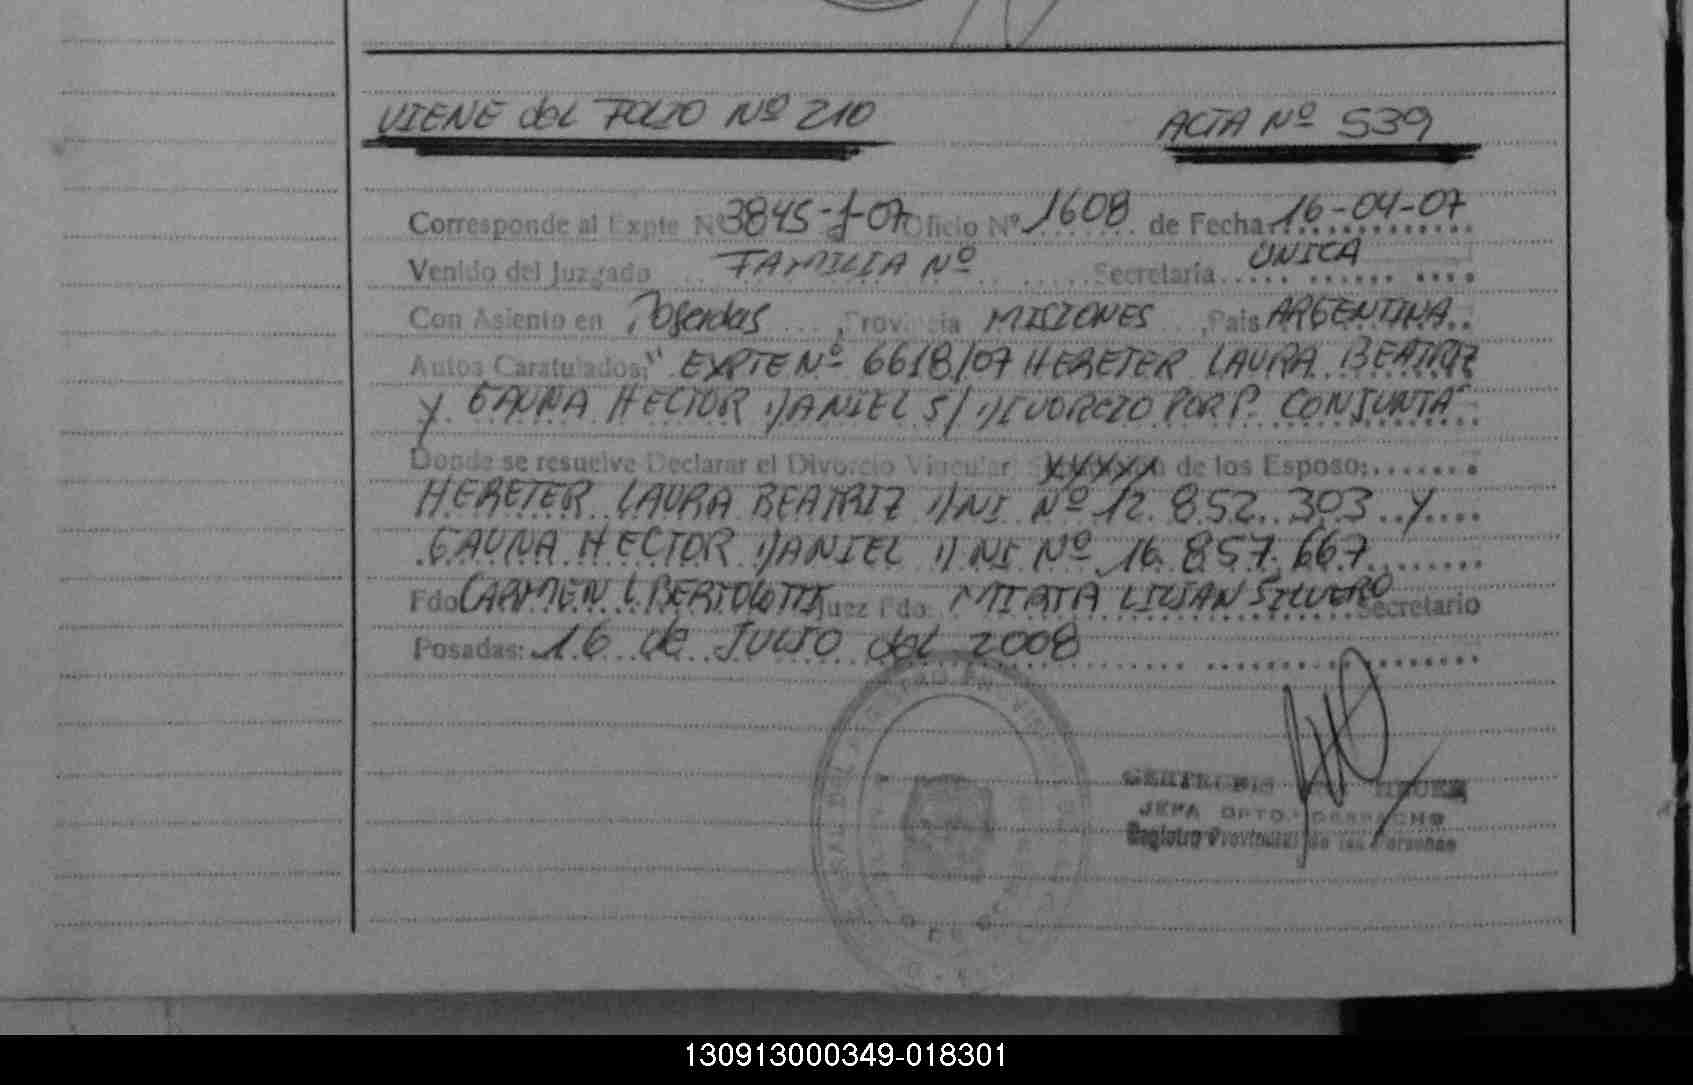 VIENE del FOLIO Nº 210 ACTA Nº 539
Corresponde al Expte Nº 3845-J-07 Oficio Nº 1608 de Fecha: 16-04-07
Venido del Juzgado FAMILIA Nº Secretaria UNICA
Con Asiento en Posadas, Provincia MISIONES, Pais ARGENTINA
Autos Caratulados; " EXPTE Nº 6618/07 HERETER LAURA BEATRIZ
y GAUNA HECTOR DANIEL S/ DIVORCIO POR P. CONJUNTA"
Donde se resuelve Declarar el Divorcio Vincular XXXXX de los Esposo:
HERETER LAURA BEATRIZ DNI Nº 12.852.303 y
GAUNA HECTOR DANIEL DNI Nº 16.857.667
Fdo CARMEN L BERTOLOTTI Juez Fdo: MIRTA LILIAN SILVERO Secretario
Posadas: 16 de JULIO del 2008
JEFA DPTO. DESPACHO
Registro Provincial de las Personas
130913000349-018301